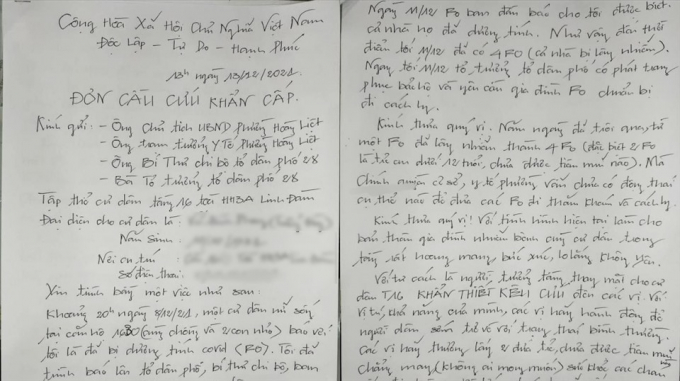 Cộng Hòa Xã Hội Chủ Nghĩa Việt Nam
Độc Lập - Tự Do - Hạnh Phúc
13h ngày 13/12/2021.
ĐƠN CẦU CỨU KHẨN CẤP.
Kính gửi: - Ông Chủ tịch UBND phường Hoàng Liệt
- Ông trạm trưởng Y Tế Phường Hoàng Liệt
- Ông Bí Thư chi bộ tổ dân phố 28
- Bà Tổ trưởng tổ dân phố 28
Tập thể cư dân tầng 16 toà HH3A Linh Đàm
Đại diện cho cư dân là:
Năm Sinh:
Nơi cư trú:
Số điện thoại:
Xin trình bày một việc như sau:
Khoảng 20h ngày 8/12/21, một cư dân nữ sống
tại căn hộ (cùng chồng và 2 con nhỏ) báo với
tôi là đã bị dương tính covid (F0). Tôi đã
trình báo lên tổ dân phố, bí thư chi bộ, ban
Ngày 11/12 F0 ban đầu báo cho tôi được biết
cả nhà họ đã dương tính. Như vậy đến thời
điểm tối 11/12 đã có 4 F0 (cả nhà bị lây nhiễm).
Ngay tối 11/12 tổ trưởng tổ dân phố có phát trang
phục bảo hộ và yêu cầu gia đình F0 chuẩn bị
đi cách ly.
Kính thưa quý vị. Năm ngày đã trôi qua, từ
một F0 đã lây nhiễm thành 4 F0 (đặc biệt 2 F0
là trẻ em dưới 12 tuổi, chưa được tiêm mũi nào). Mà
chính quyền cơ sở, y tế phường vẫn chưa có động thái
cụ thể nào để đưa các F0 đi thăm khám và cách ly.
Kính thưa quý vị! Với tình hình hiện tại làm cho
bản thân gia đình nhiễm bệnh cùng cư dân trong
tầng rất hoang mang, bức xúc, lo lắng không yên.
Với tư cách là người trưởng tầng thay mặt cho cư
dân T16 KHẨN THIẾT KÊU CỨU đến các vị. Với
vị trí, khả năng của mình, các vị hãy hành động để
người dân sớm trở về với trạng thái bình thường.
Các vị hãy thương lấy 2 đứa trẻ, chưa được tiêm mũi nào
chẳng may (không ai mong muốn) sức khỏe các cháu